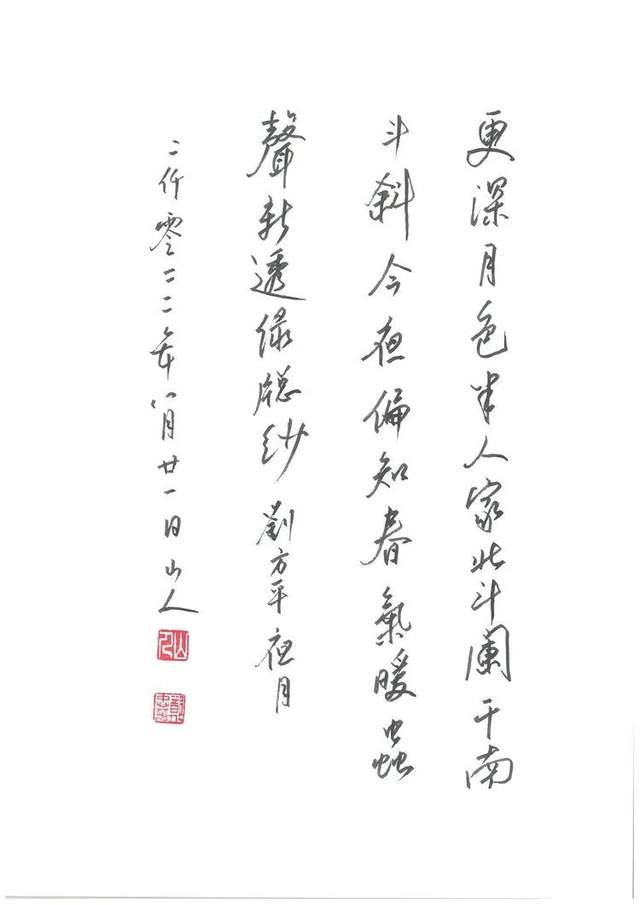 更深月色半人家北斗闌干南
斗斜今夜偏知春氣暖蟲
聲新透綠牕紗 劉方平夜月
二仟零二二年八月廿一日山人
山人